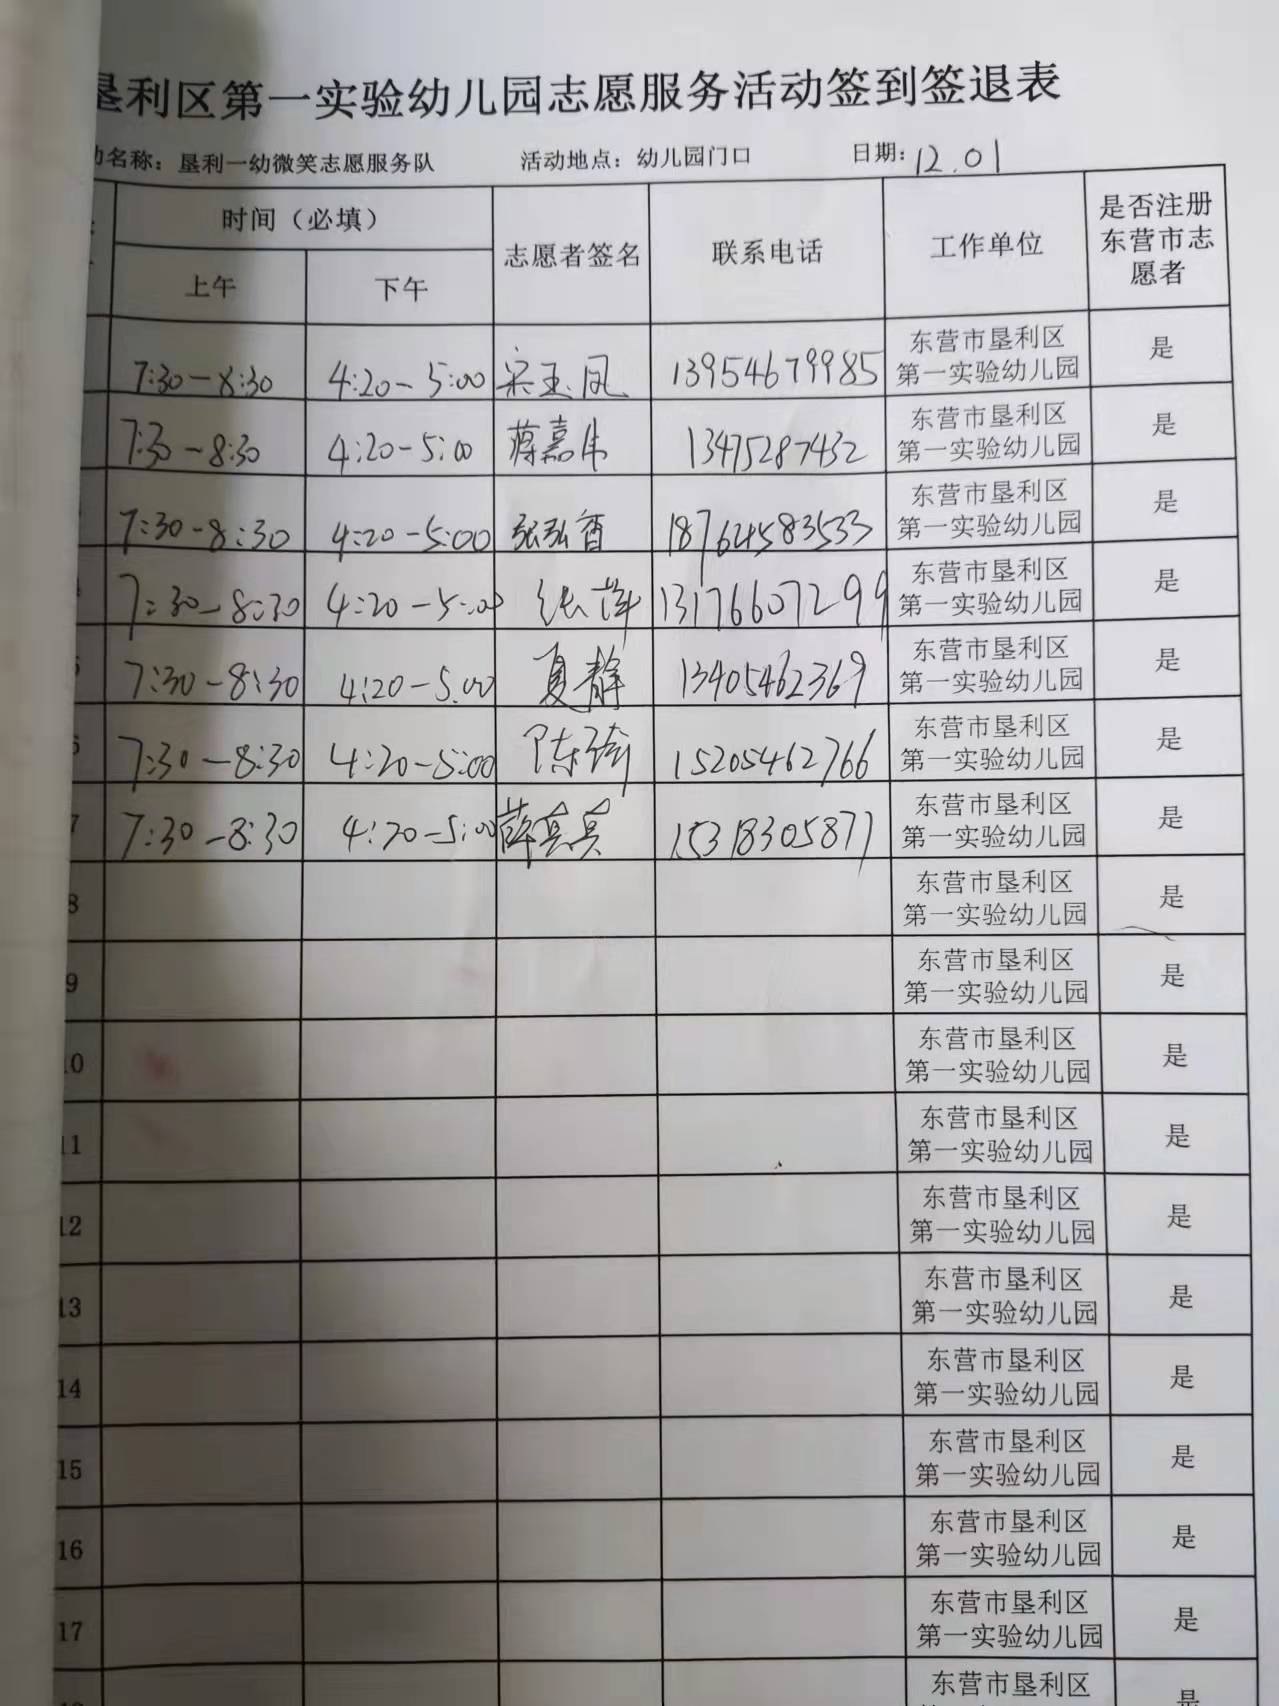 垦利区第一实验幼儿园志愿服务活动签到签退表
动名称：垦利一幼微笑志愿服务队 活动地点：幼儿园门口 日期：12.01
时间（必填） 志愿者签名 联系电话 工作单位 是否注册东营市志愿者
上午 下午
7:30-8:30 4:20-5:00 宋玉凤 13954679985 东营市垦利区第一实验幼儿园 是
7:30-8:30 4:20-5:00 蒋嘉伟 13475287432 东营市垦利区第一实验幼儿园 是
7:30-8:30 4:20-5:00 张弘香 18764583533 东营市垦利区第一实验幼儿园 是
7:30-8:30 4:20-5:00 张萍 13176607299 东营市垦利区第一实验幼儿园 是
5 7:30-8:30 4:20-5:00 夏静 13405462369 东营市垦利区第一实验幼儿园 是
6 7:30-8:30 4:20-5:00 陈琦 15205462766 东营市垦利区第一实验幼儿园 是
7 7:30-8:30 4:20-5:00 薛真真 15318305877 东营市垦利区第一实验幼儿园 是
8 东营市垦利区第一实验幼儿园 是
9 东营市垦利区第一实验幼儿园 是
10 东营市垦利区第一实验幼儿园 是
11 东营市垦利区第一实验幼儿园 是
12 东营市垦利区第一实验幼儿园 是
13 东营市垦利区第一实验幼儿园 是
14 东营市垦利区第一实验幼儿园 是
15 东营市垦利区第一实验幼儿园 是
16 东营市垦利区第一实验幼儿园 是
17 东营市垦利区第一实验幼儿园 是
东营市垦利区 是